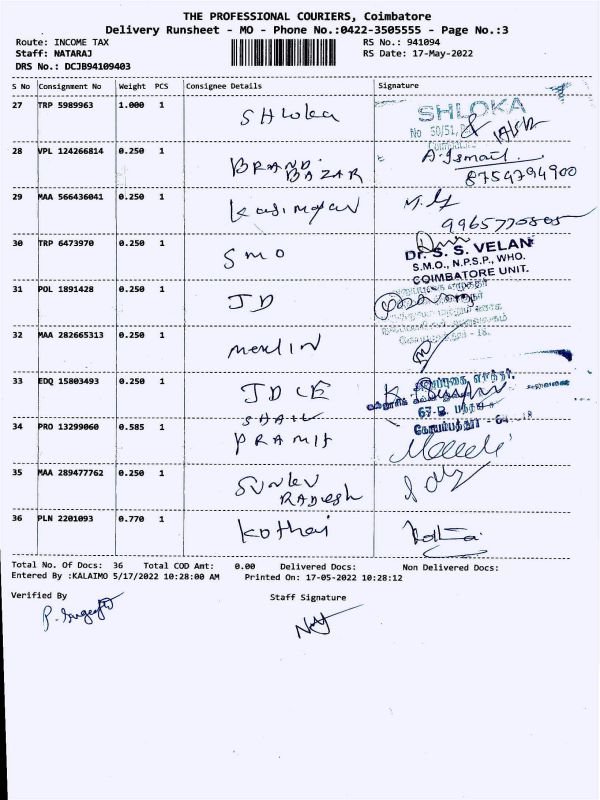 THE PROFESSIONAL COURIERS, Coimbatore
Delivery Runsheet - MO - Phone No.:0422-3505555 - Page No.:3
Route: INCOME TAX
Staff: NATARAJ
DRS No.: DCJB94109403
RS No.: 941094
RS Date: 17-May-2022
S No Consignment No Weight PCS Consignee Details Signature
27 TRP 5989963 1.000 1 SHloka SHLOKA
No 50/51,
28 VPL 124266814 0.250 1 BRAND BAZAR A. Ismail
8754794900
29 MAA 566436041 0.250 1
30 TRP 6473970 0.250 1 SMO
Dr. S. S. VELAN
S.M.O., N.P.S.P., WHO.
COIMBATORE UNIT.
31 POL 1891428 0.250 1 JD
32 MAA 282665313 0.250 1 merlin
33 EDQ 15803493 0.250 1 JD CE
34 PRO 13299060 0.585 1 PRAMIT
35 MAA 289477762 0.250 1
36 PLN 2201093 0.770 1 Kothai
Total No. Of Docs: 36 Total COD Amt: 0.00 Delivered Docs: Non Delivered Docs:
Entered By :KALAIMO 5/17/2022 10:28:00 AM Printed On: 17-05-2022 10:28:12
Verified By Staff Signature